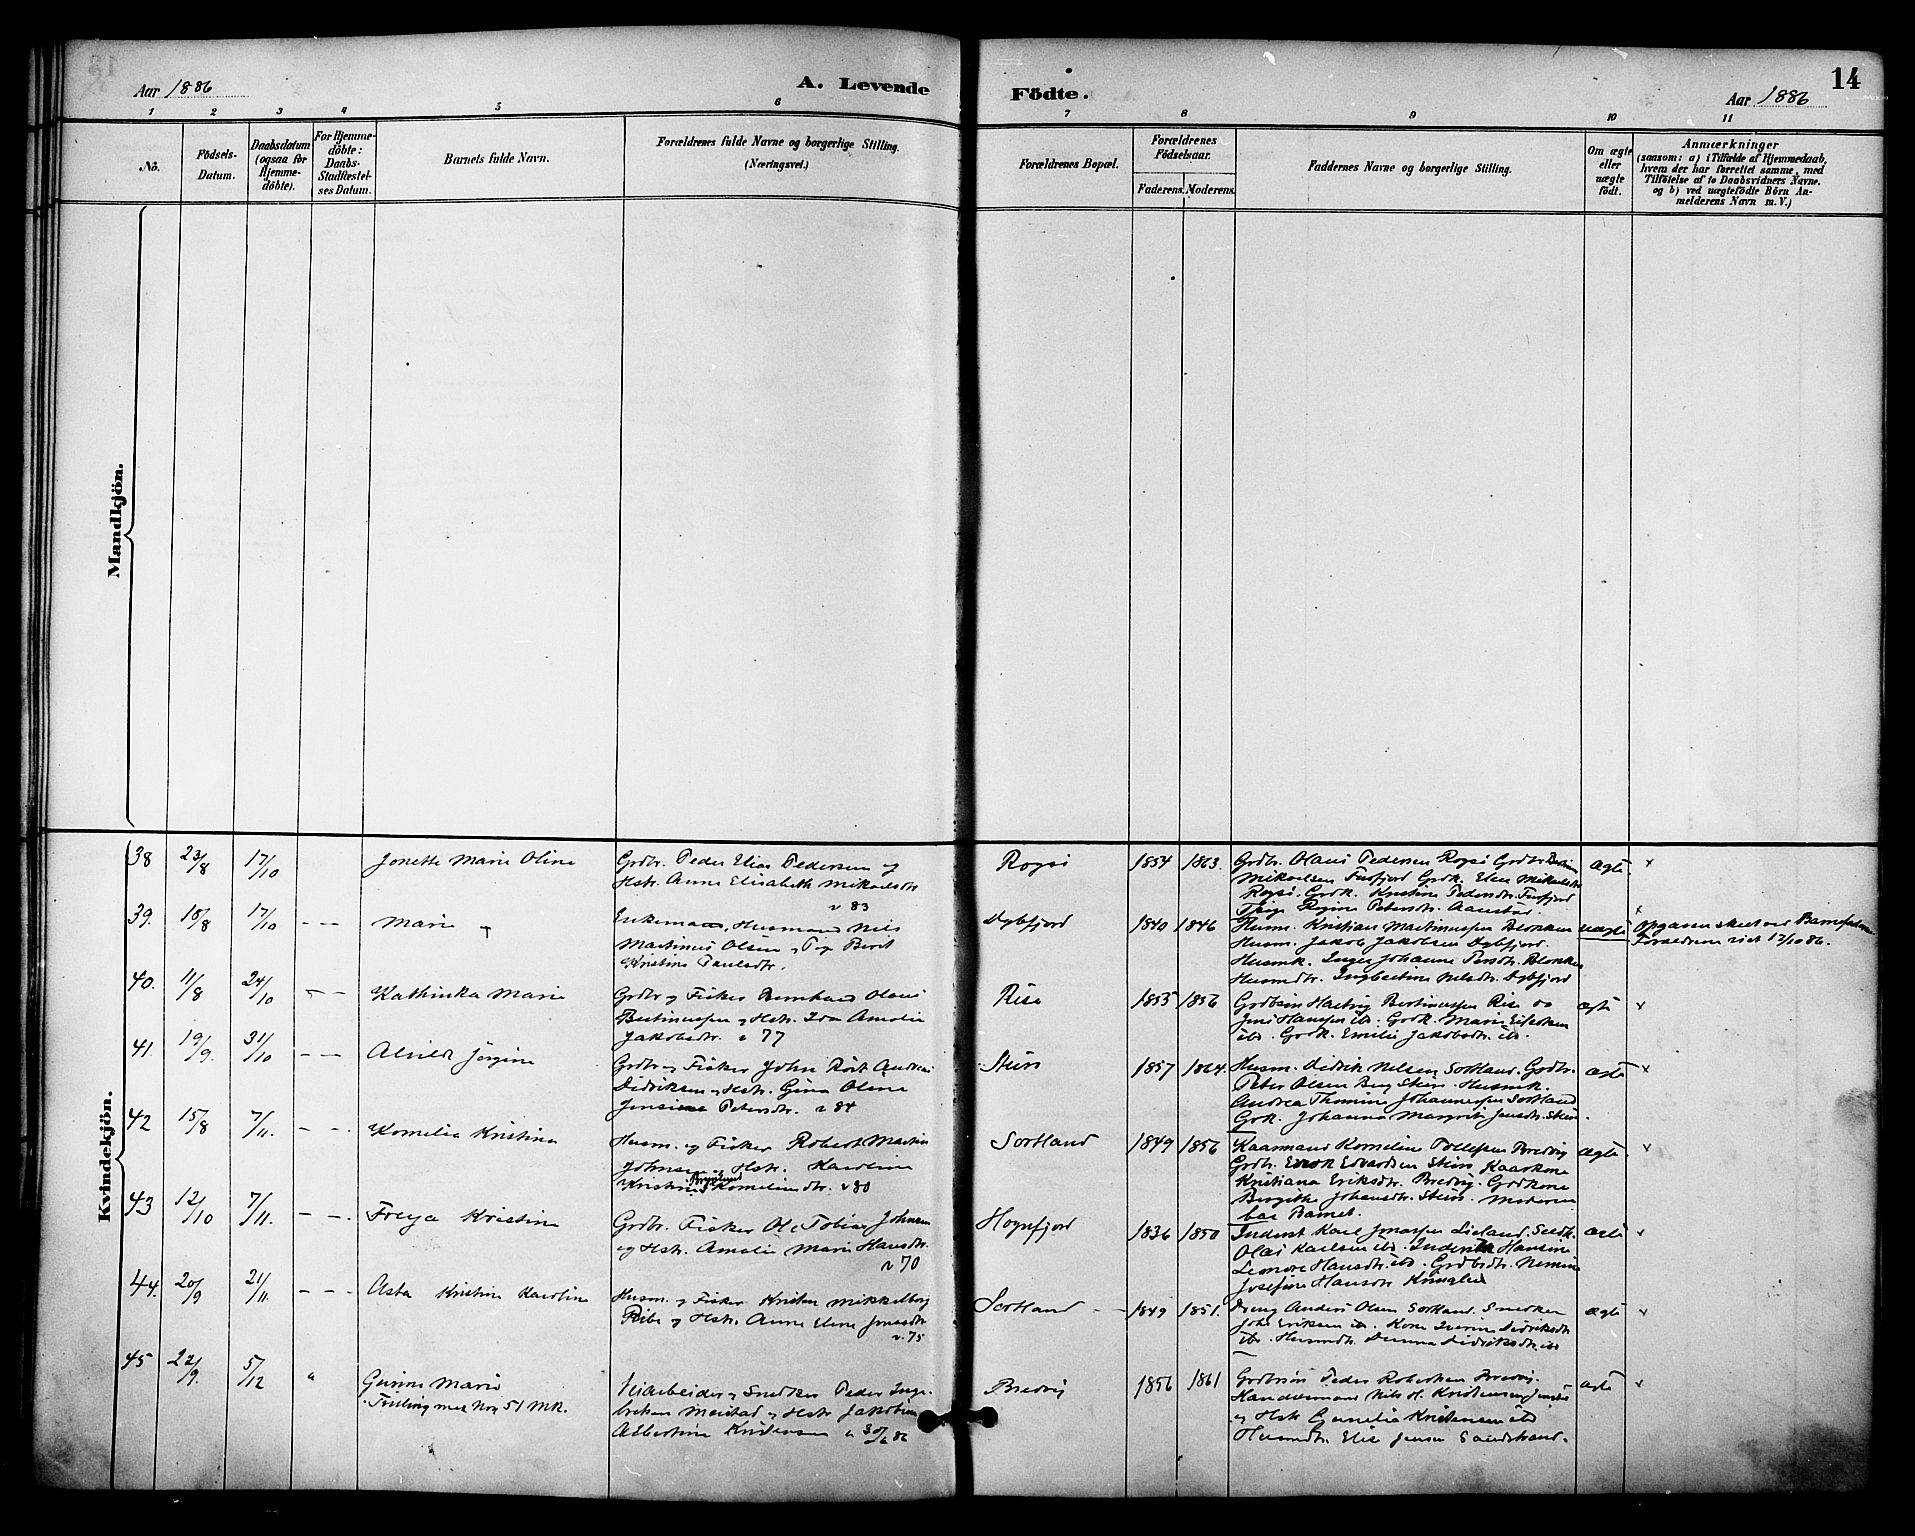 Aar 1886
A. Levende
Födte.
Aar 1886
14
1 2 3 4 5 6 7 8 9 10 11
No.
Födsels-
Datum.
Daabsdatum
(ogsaa for
Hjemme-
döbte).
For Hjemme-
döbte:
Daabs-
Stadfæstel-
ses Datum.
Barnets fulde Navn.
Forældrenes fulde Navne og borgerlige Stilling.
(Næringsvei.)
Forældrenes Bopæl.
Forældrenes
Födselsaar.
Faderens. Moderens.
Faddernes Navne og borgerlige Stilling.
Om ægte
eller
uægte
födt.
Anmærkninger
(saasom: a) i Tilfælde af Hjemmedaab,
hvem der har forrettet samme, med
Tilföielse af to Daabsvidners Navne,
og b) ved uægtefödte Börn An-
melderens Navn m. V.)
Mandkjön.
Kvindekjön.
38 23/8 17/10 Jonette Marie Oline
Grdbr. Peder Elias Pedersen og
Hstr. Anne Elisabeth Mikaelsdtr
v 83
Roksö 1854 1863.
Grdbr. Olaus Pedersen
Mikaelsen Grdk. Elen
Grdk. Kristine Pedersdtr.
Pige Regine Petersdtr.
ægte
39. 18/8 17/10 - - - Marie
Enkemand, Husmand Nils
Martinus Olsen og Pige Berit
Kristine Paulsdtr.
Dybfjord 1840 1846
Husm. Kristian Martinussen Blokken
Husm. Jakob Jakobsen Dybfjord.
Husmk. Inger Johanne Blokken
Husmdtr. Ingbertine Nilsdtr. Dybfjord
uægte
Opgaven skeet ved Barnefaderen
40. 11/8 24/10 - - Kathinka Marie
Grdbr og Fisker Bernhard Olaus
Bertinussen og Hstr. Ida Amalie
Jakobsdtr. v 77
Rise 1855 1856
Grdbsön Hartvig Bertinussen Rise og
Jens Hansen ibd. Grdk. Marie
ibd. Grdk. Emilie Jakobsdtr. ibd.
ægte
41. 19/9. 31/10 - - Alvilde Jörgine
Grdbr og Fisker John Andreas
Didriksen og Hstr. Gina Oline
Jensine Petersdtr. v 84
Steiro 1857 1864.
Husm. Didrik Nilsen Sortland. Grdbr.
Peter Olsen Berg Steiro. Husmk.
Andrea Thomine Johannessen Sortland
Grdk. Johanna Margrit Jensdtr. Steiro
ægte
42 15/8 7/11. - - Kornelia Kristina
Husm. og Fisker Robert Martin
Johnsen og Hstr. Karoline
Kristine Korneliusdtr. v 80
Sortland 1849 1856
Kaarmand Kornelius Tollefsen Bredvig
Grdbr. Erik Edvardsen Steiro Kaarkone
Kristiana Eriksdtr. Bredvig. Grdkone
Birgithe Johansdtr. Steiro. Moderen
bar Barnet.
ægte
43 12/10 7/11. - - Freya Kristine
Grdbr. Fisker Ole Tobias Johnsen
og Hstr. Amalie Marie Hansdtr.
v 70
Hognfjord 1836 1850
Inderst Karl Jonassen
Olai Karlsen ibd. Hansine
Lenore Hansdtr. ibd.
Josefine Hansdtr
ægte
44. 20/9 21/11. - - - Asta Kristine Karoline
Husm. og Fisker Kristen Mikkelborg
Ribe og Hstr. Anne Elene Jonasdtr
v. 75
Sortland - - 1849 1851.
Dreng Anders Olsen Sortland. Snedker
Johs Eriksen ibd. Kone Iverine Didriksdtr
ibd. Husmdtr. Didriksdtr. ibd
ægte
45 22/9. 5/12 " Gunne Marie
Tvilling med No 51 MK.
Veiarbeider og Snedker Peder Inge-
briktsen Meistad og Hstr. Jakobine
Albertine Kristensen v 30/6 86
Bredvig 1856 1861
Grdbrsön Peder Robertsen Bredvig.
Handelsmand Nils H. Kristensen
og Hstr Cornelia Kristensen ibd
Husmdtr. Elis Jensen Sandstrand.
ægte